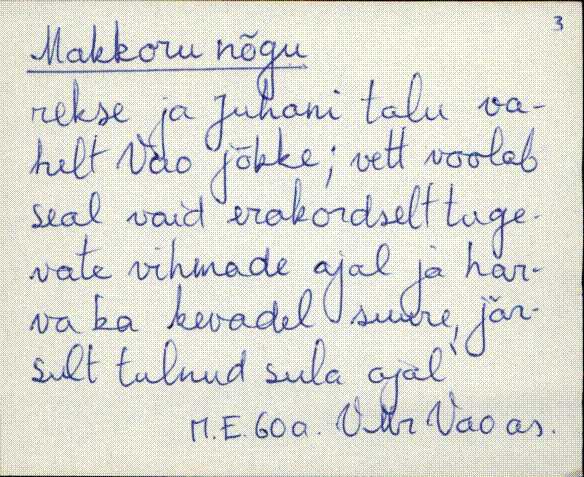 3
Makkoru nõgu
rekse ja Juhani talu va-
helt Vao jõkke; vett voolab
seal vaid erakordselt tuge-
vate vihmade ajal ja har-
va ka kevadel suure, jär-
sult tulnud sula ajal‵
M.E. 60 a. VMr Vao as.